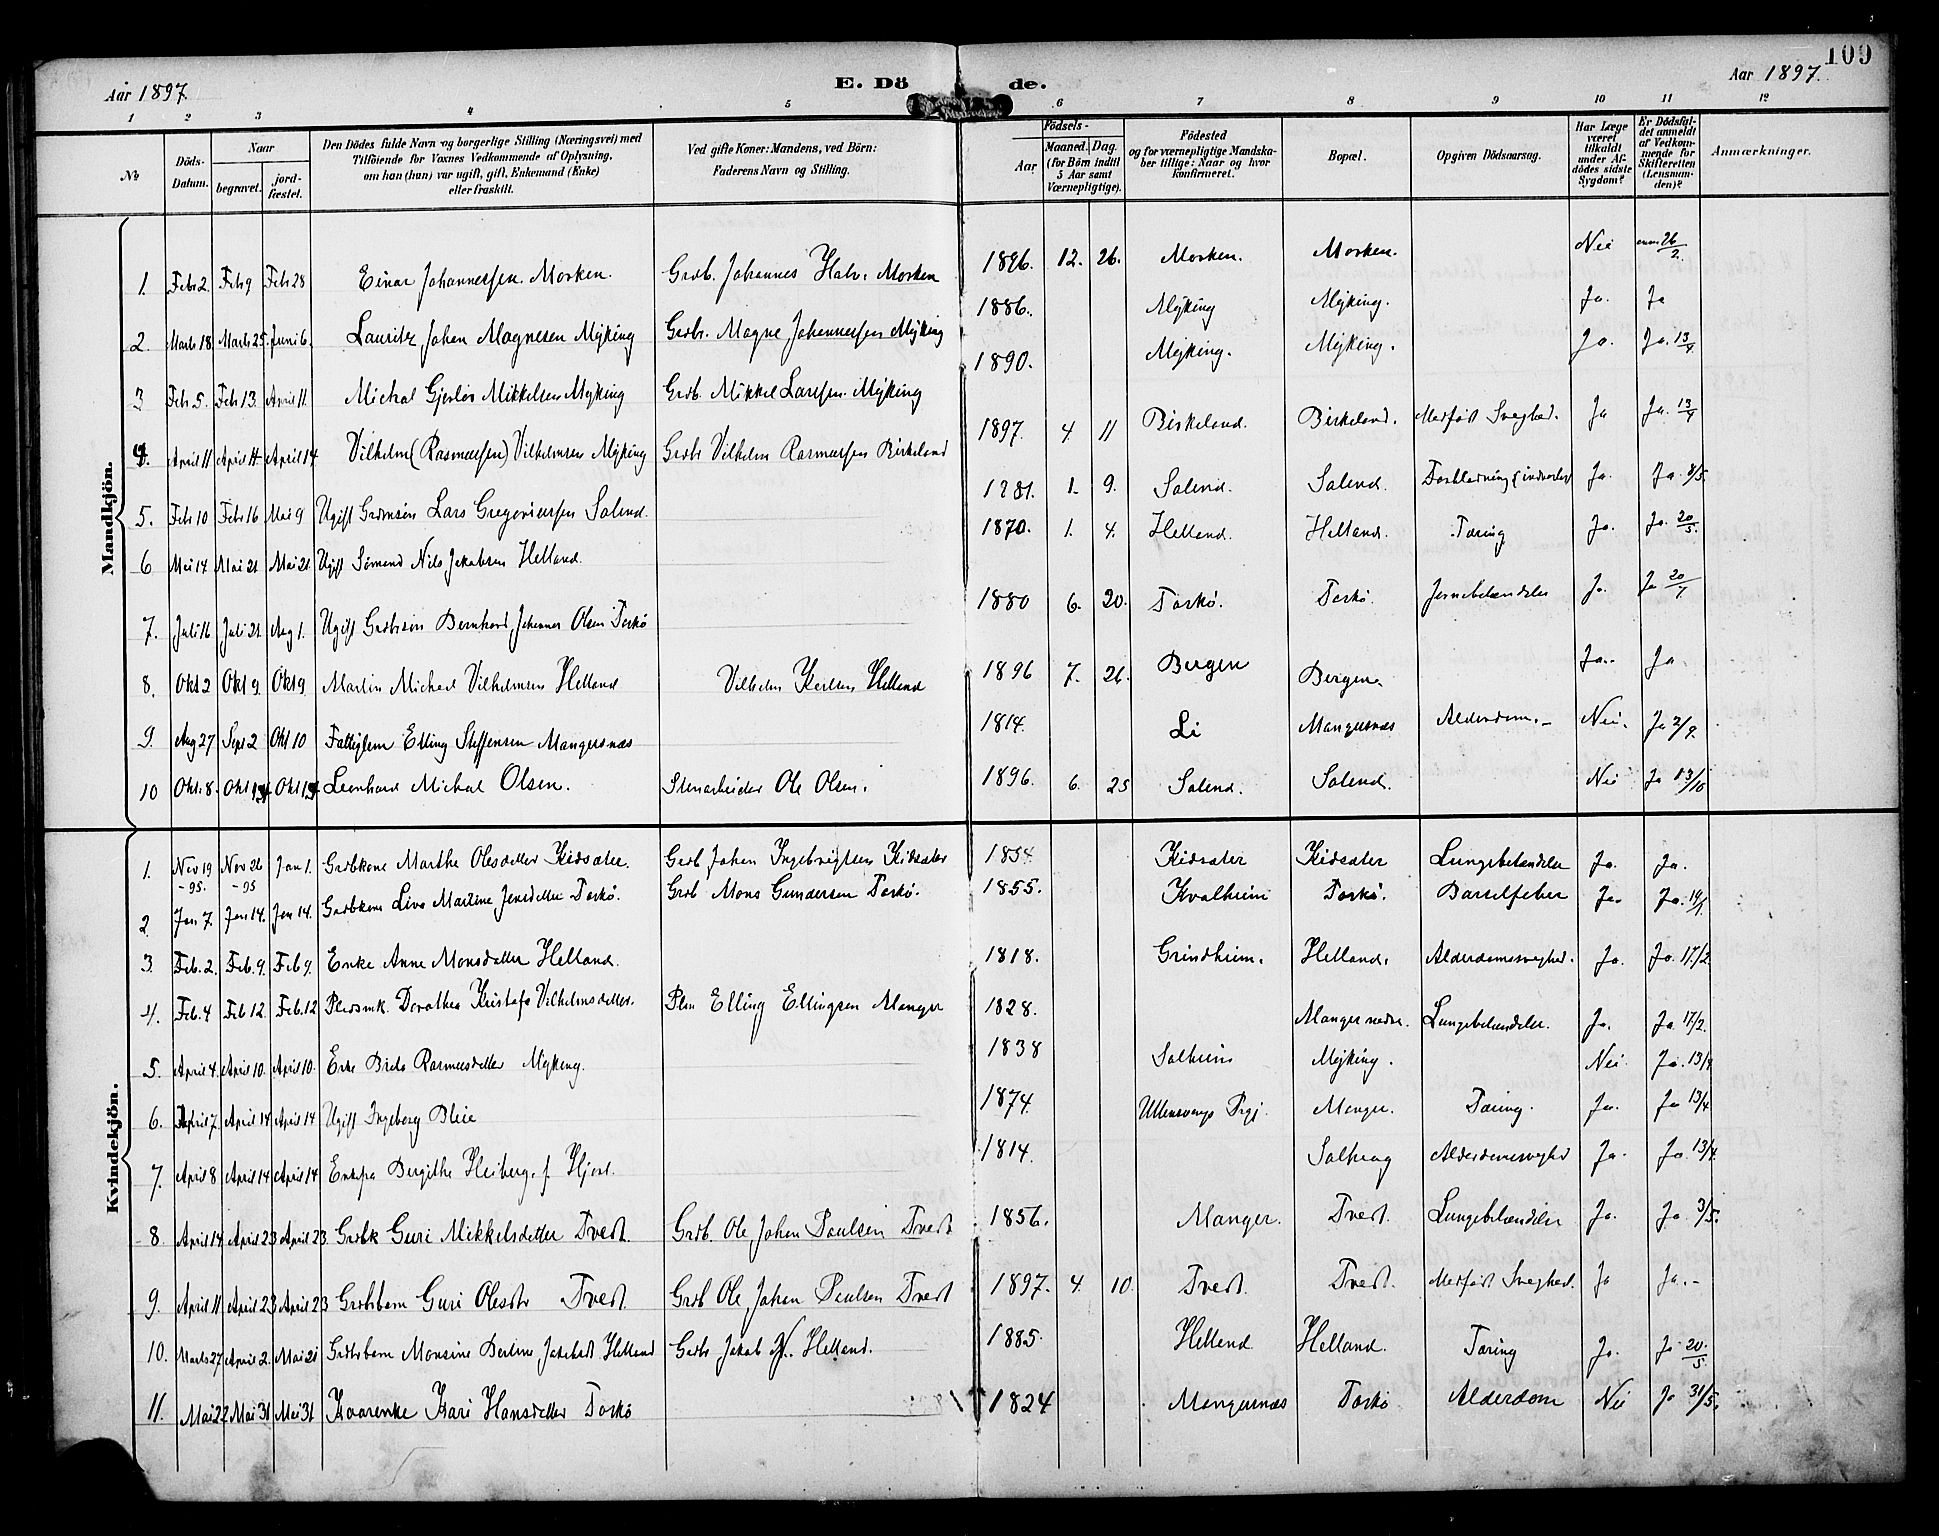 109
Aar 1897. E. Dö de. Aar 1897.
1 2 3 4 5 6 7 8 9 10 11 12
No
Döds-Datum.
Naar
begravet. jordfæstet.
Den Dödes fulde Navn og borgerlige Stilling (Næringsvei) med Tilföiende for Voxnes Vedkommende af Oplysning, om han (hun) var ugift, gift, Enkemand (Enke) eller fraskilt.
Ved gifte Koner: Mandens, ved Börn: Faderens Navn og Stilling.
Födsels-
Aar Maaned. Dag.
(for Börn indtil 5 Aar samt Værnepligtige).
Födested og for værnepligtige Mandskaber tillige: Naar og hvor konfirmeret.
Bopæl.
Opgiven Dödsaarsag.
Har Læge været tilkaldt under Afdödes sidste Sygdom?
Er Dödsfaldet anmeldt af Vedkommende for Skifteretten (Lensmanden)?
Anmærkninger.
Mandkjön.
1. Feb 2. Feb 9 Feb 28 Einar Johannessen Morken. Grdb. Johannes Halv. Morken 1896. 12. 26. Morken. Morken. Nei 26/2.
2. Marts 18. Marts 25. Juni 6. Lauritz Johan Magnesen Mýking Grdbr. Magne Johannessen Mýking 1886. Mýking Mýking. Ja. Ja
3 Feb 5. Feb 13. April 11. Michal Gjerlöv Mikkelsen Mýking Grdb. Mikkel Larssen Mýking 1890. Mýking. Mýking. Ja. Ja. 13/4.
4. April 11 April 14. April 14 Vilhelm (Rasmussen) Vilhelmsen Mýking Grdbr Vilhelm Rasmussen Birkeland 1897. 4. 11 Birkeland. Birkeland. Medfödt Svaghed. Ja Ja. 13/4
5. Feb 10 Feb 16 Mai 9 Ugift Grdmsön Lars Gregoriussen Solend. 1881. 1. 9. Solend. Solend. Ja. Ja 8/5.
6 Mai 14 Mai 21 Mai 21. Ugift Sömand Nils Jakobsen Helland. 1870. 1. 4. Helland. Helland. Tæring Ja. Ja. 20/5.
7. Juli 16 Juli 21. Aug 1. Ugift Grdbrsön Bernhard Johannes Olsen Toskö 1880 6. 20. Toskö. Toskö. Ja. Ja 20/7.
8. Okt 2 Okt 9. Okt 9. Martin Michael Vilhelmsen Helland Vilhelm Karlsen Helland 1896 7. 26. Bergen Bergen. Ja. Ja.
9. Aug 27 Sept 2 Okt 10 Fattiglem Elling Steffensen Mangersnæs 1814. Li Mangersnæs Alderdom. Nei. Ja 2/9.
10 Okt. 8. Okt Okt Leonhard Michal Olsen. Stenarbeider Ole Olsen. 1896. 6. 25 Solend. Solend. Nei Ja 13/10
Kvindekjön.
1. Nov 19 -95. Nov 26 -95 Jan 1. Grdbkone Marthe Olesdatter Kidsæter. Grdb Johan Ingebrigtsen Kidsæter 1854. Kidsæter Kidsæter Lungebetændelse Ja. Ja.
2. Jan 7. Jan 14. Jan 14. Grdbkone Liva Martine Jensdatter Toskö. Grdb Mons Gundersen Toskö. 1855. Kvalheim Toskö. Barselfeber Ja. Ja. 19/1.
3. Feb. 2. Feb. 9. Feb 9. Enke Anne Monsdatter Helland. 1818. Grindheim. Helland. Alderdomssvaghed. Ja. Ja. 17/2
4. Feb. 4 Feb 12. Feb. 12 Pladsmk. Dorothea Kristofa Vilhelmsdatter. Plm Elling Ellingsen Manger 1828. Manger nedre. Lungebetændelse. Ja. Ja 17/2.
5. April 4. April 10. April 10. Enke Brita Rasmusdatter Mýking. 1838 Solheim Mýking. Nei Ja. 13/4
6. April 7. April 14 April 14 Ugift Ingeborg Bleie 1874. Ullensvangs Prgj. Manger. Tæring. Ja. Ja 13/4
7. April 8 April 14 April 14 Enkefru Bergithe Heiberg. f. Hjort. 1814. Solhoug Alderdomssvaghed Ja. Ja. 13/4.
8. April 14 April 23 April 23. Grdbk Guri Mikkelsdatter Tvedt. Grdb. Ole Johan Paulsen Tvedt 1856. Manger. Tvedt. Lungebetændelse Ja. Ja. 3/5.
9. April 11 April 23 April 23 Grdbrbarn Guri Olesdtr Tvedt. Grdb Ole Johan Paulsen Tvedt 1897. 4. 10. Tvedt. Tvedt. Medfödt Svaghed. Ja Ja.
10. Marts 27 April 2. Mai 21 Grdbrbarn Monsine Bertine Jakobsdt Helland Grdbr Jakob N. Helland. 1885. Helland Helland. Tæring Ja. Ja 20/5
11. Mai 22 Mai 31 Mai 31 Kaarenke Kari Hansdatter Toskö 1824 Mangersnæs Toskö Alderdom Nei Ja 31/5.